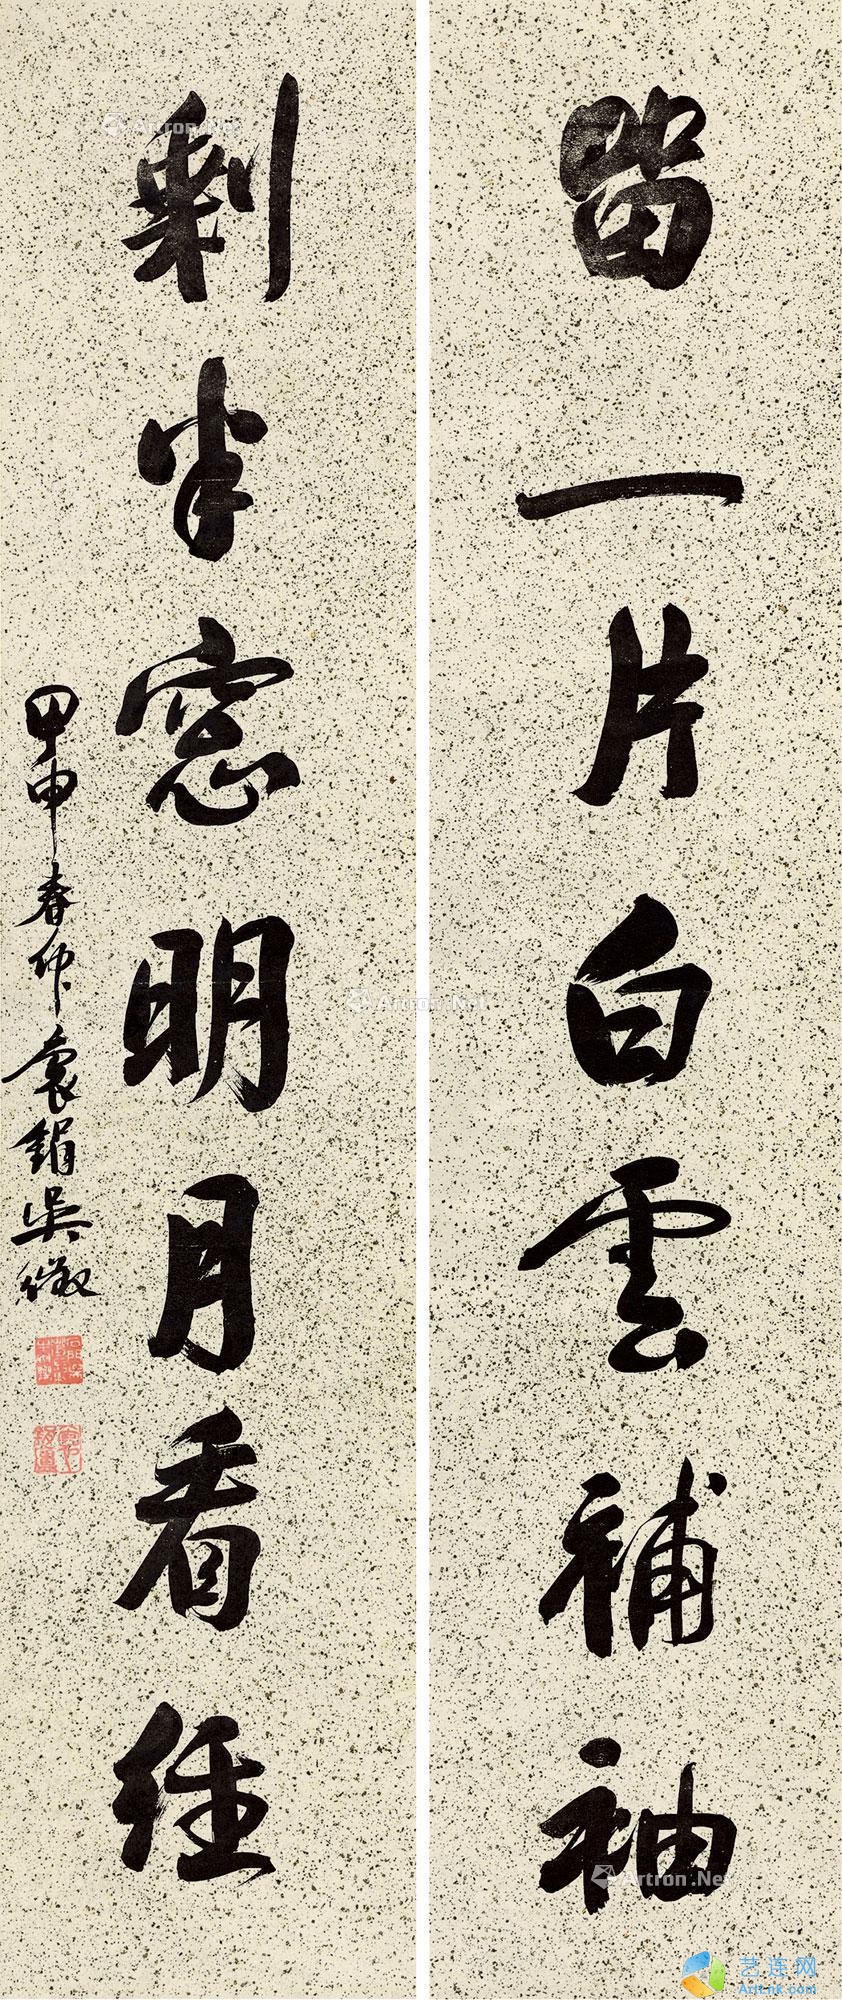 留一片白雲補袖
剩半窓明月看经
甲申春仲袁鋗吴徵
Artron.Net
Artron.Net
Artron.Net
艺连网
Artlnk.com